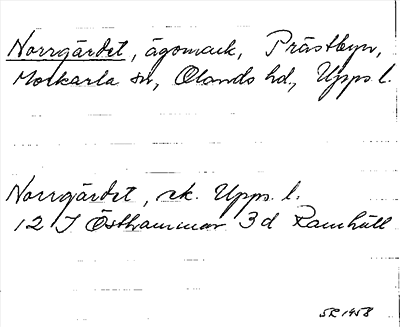 Norrgärdet, ägomark, Prästbyn,
Morkarla sn, Olands hd, Upps. l.
Norrgärdet, ek. Upps. l.
12 I Östhammar 3 d Ramhäll
SR 1958